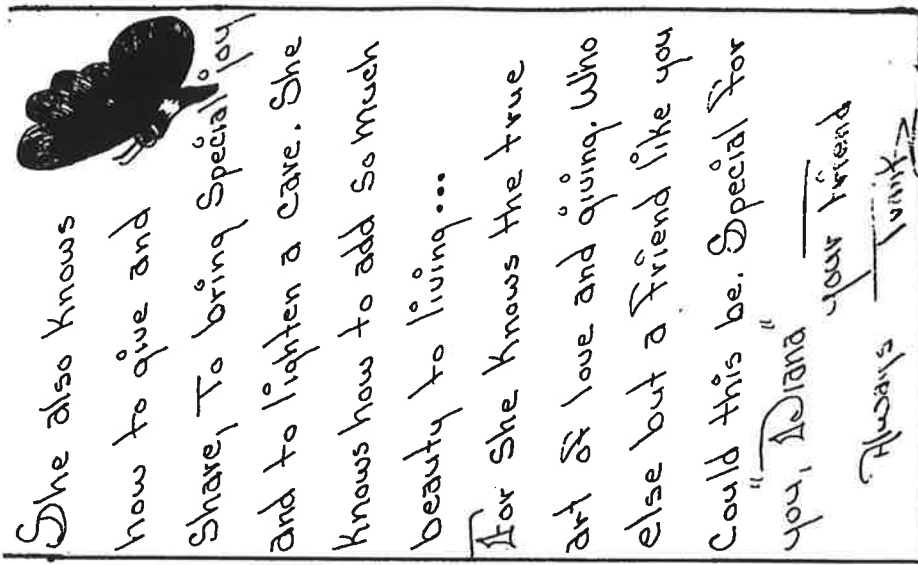 She also knows
how to give and
Share, To bring Special joy
and to lighten a care. She
Knows how to add So much
beauty to living...
For She Knows the true
art of love and giving. Who
else but a Friend like you
Could this be. Special For
you, "Diana"
your Friend
Always